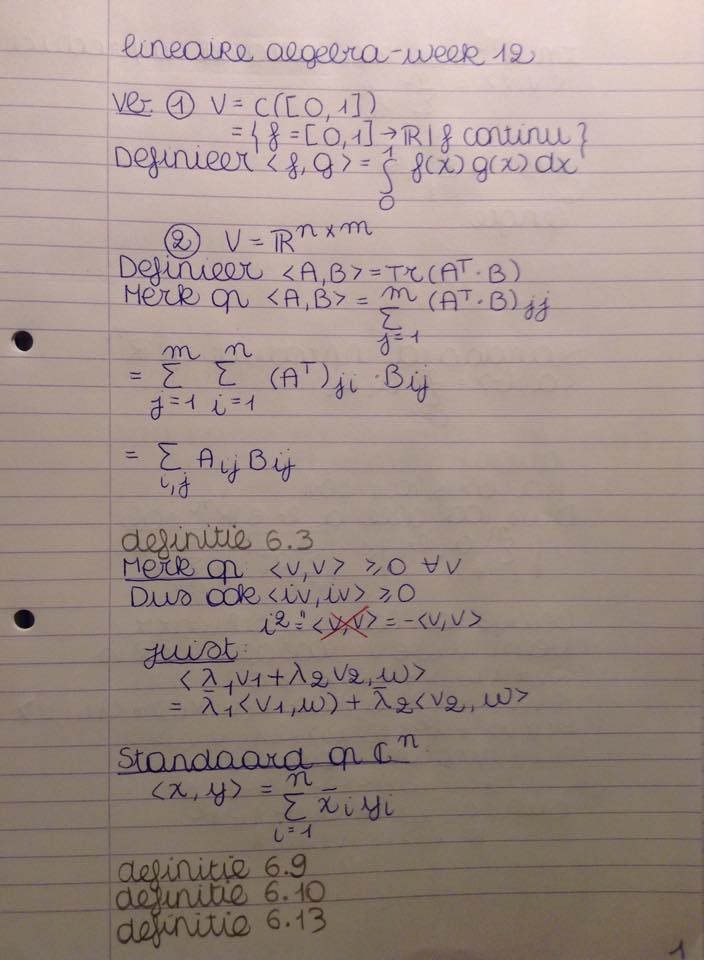 lineaire algebra - week 12
Vb. ① V = C([0,1])
= { f = [0,1] → ℝ | f continu }
Definieer <f, g> = ∫₀¹ f(x) g(x) dx
② V = ℝⁿˣᵐ
Definieer <A,B> = Tr(Aᵀ·B)
Merk op <A,B> = Σ_{j=1}^{m} (Aᵀ·B)_{jj}
= Σ_{j=1}^{m} Σ_{i=1}^{n} (Aᵀ)_{ji} · B_{ij}
= Σ_{i,j} A_{ij} B_{ij}
definitie 6.3
Merk op <v,v> ≥ 0 ∀v
Dus ook <iv, iv> ≥ 0
i² = <v,v> = -<v,v>
Juist:
<λ₁v₁ + λ₂v₂, w>
= λ̄₁<v₁, w> + λ̄₂<v₂, w>
Standaard op ℂⁿ:
<x, y> = Σ_{i=1}^{n} x̄ᵢ yᵢ
definitie 6.9
definitie 6.10
definitie 6.13
1